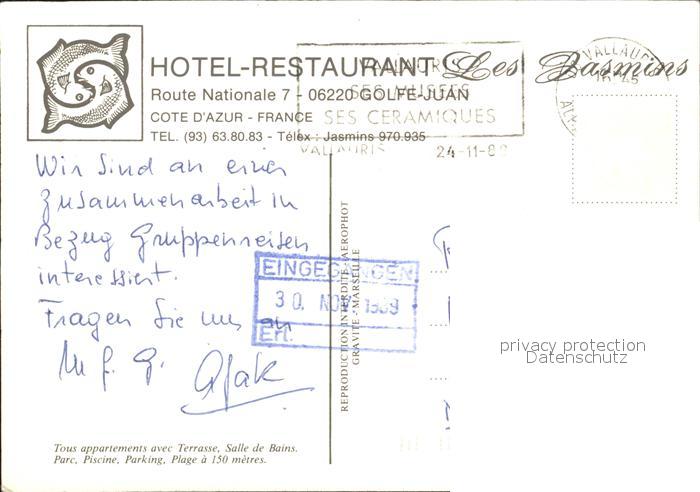 HOTEL-RESTAURANT Les Jasmins
Route Nationale 7 - 06220 GOLFE-JUAN
COTE D'AZUR - FRANCE
TEL. (93) 63.80.83 - Télex : Jasmins 970.935
VALLAURIS
SES MUSEES
SES CERAMIQUES
VALLAURIS 24-11-89
Wir sind an einer
Zusammenarbeit in
Bezug Gruppenreisen
interessiert.
Fragen Sie uns an
M. f. G.
EINGEGANGEN
30. NOV. 1989
Erl.
REPRODUCTION INTERDITE - AEROPHOT
GRAVITE - MARSEILLE
privacy protection
Datenschutz
Tous appartements avec Terrasse, Salle de Bains.
Parc, Piscine, Parking, Plage à 150 mètres.